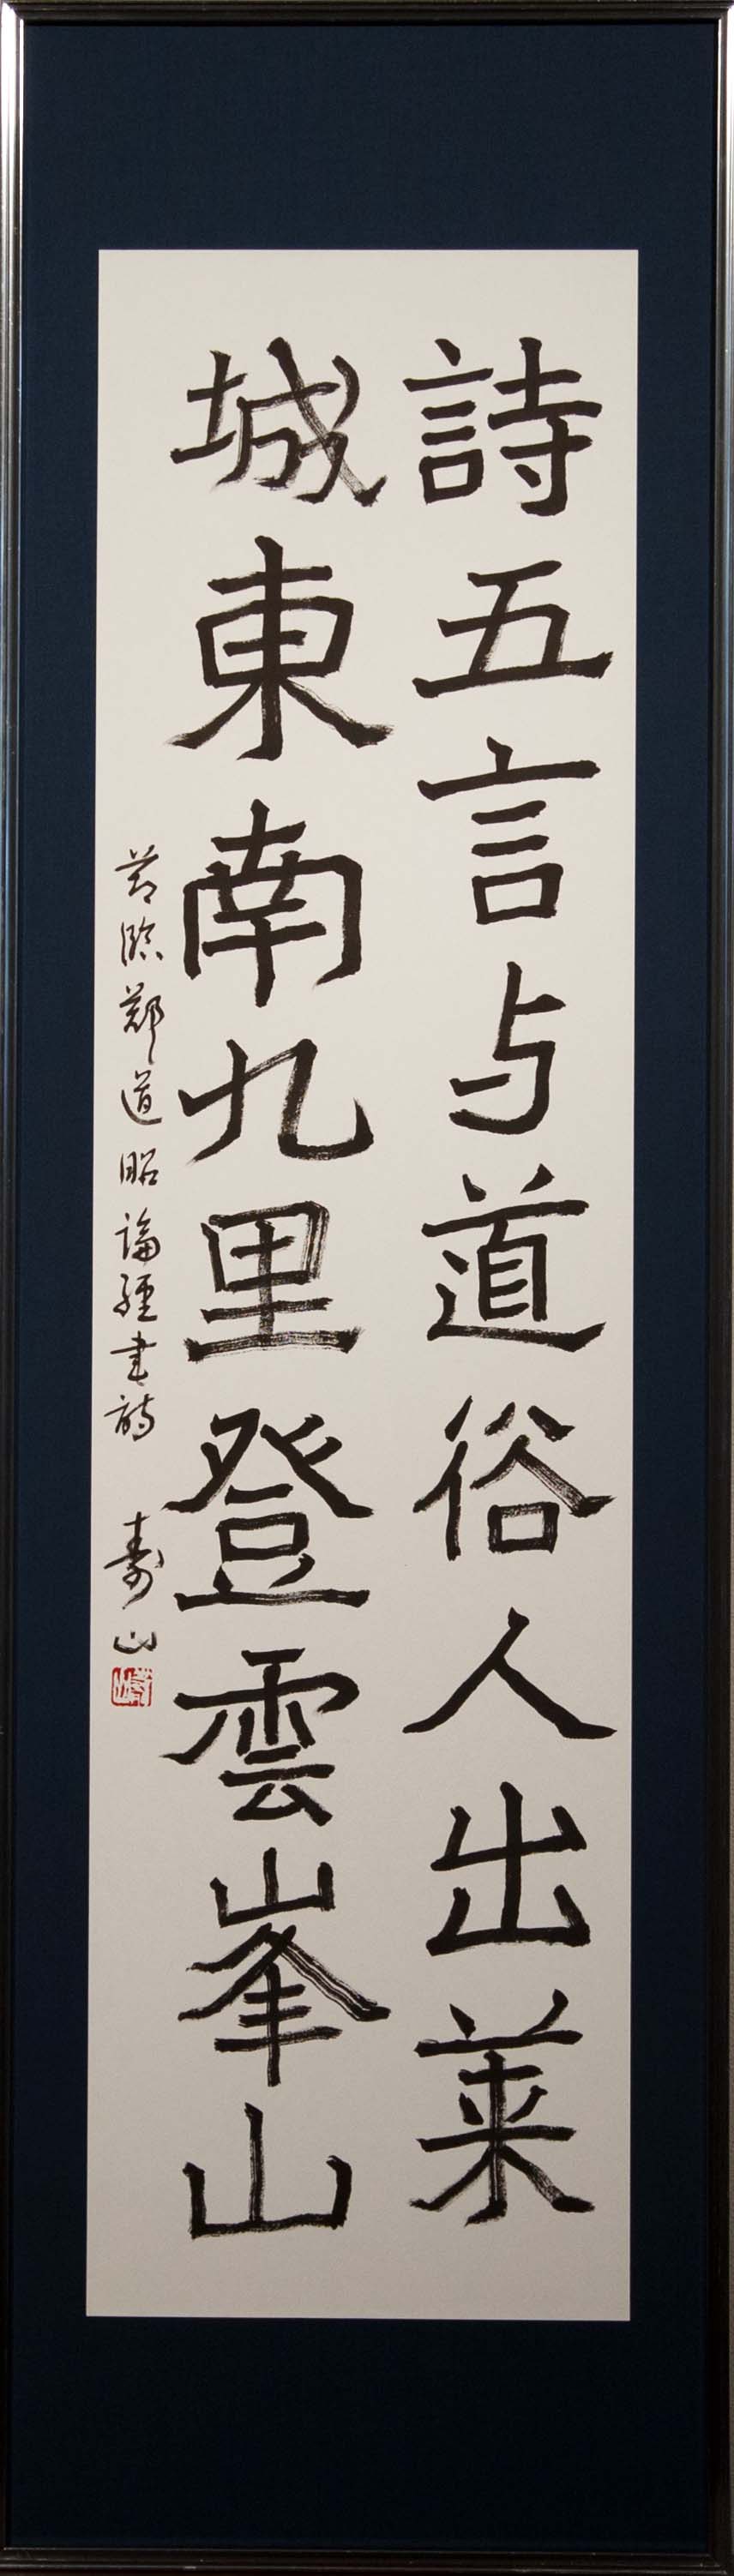 詩五言与道俗人出莱
城東南九里登雲峯山
節臨鄭道昭論経書詩 寿山